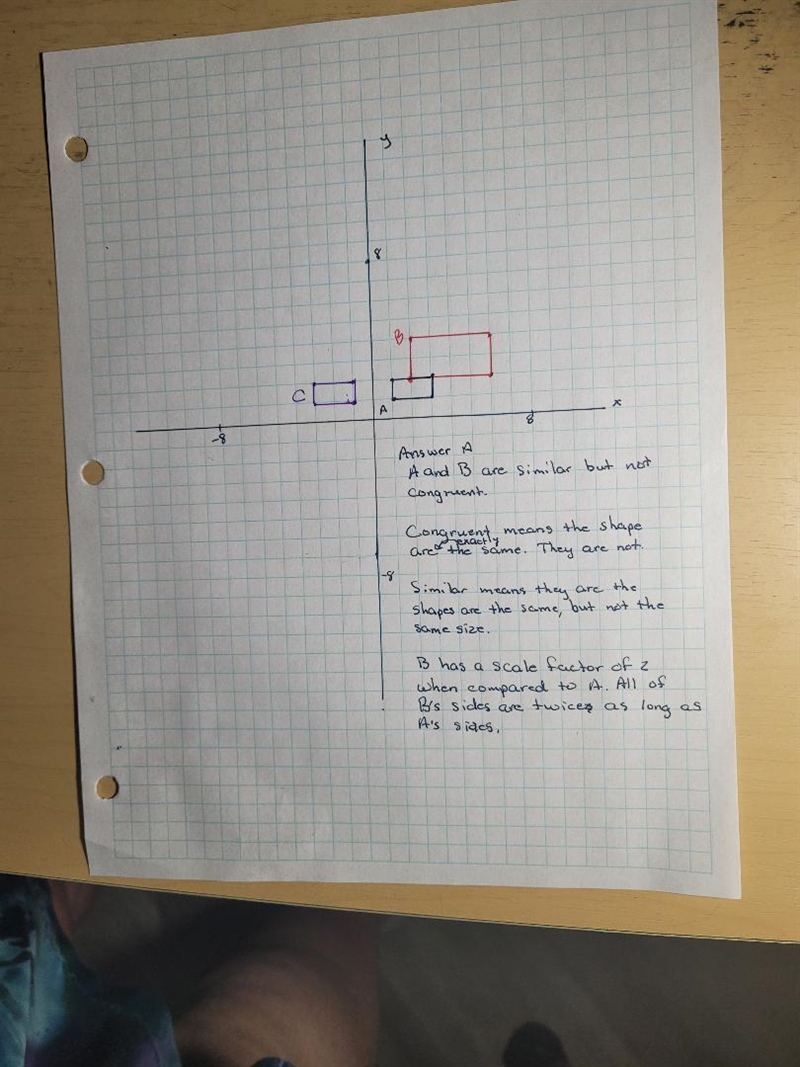 y
8
B
C
A
x
-8
8
Answer A
A and B are similar but not
congruent.
Congruent means the shape
exactly
are the same. They are not.
-8
Similar means they are the
shapes are the same, but not the
same size.
B has a scale factor of 2
when compared to A. All of
B's sides are twice as long as
A's sides.